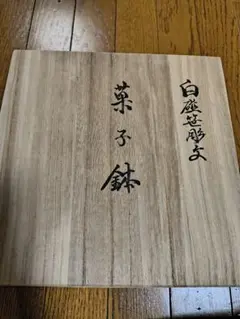 白磁笹彫文
菓子鉢